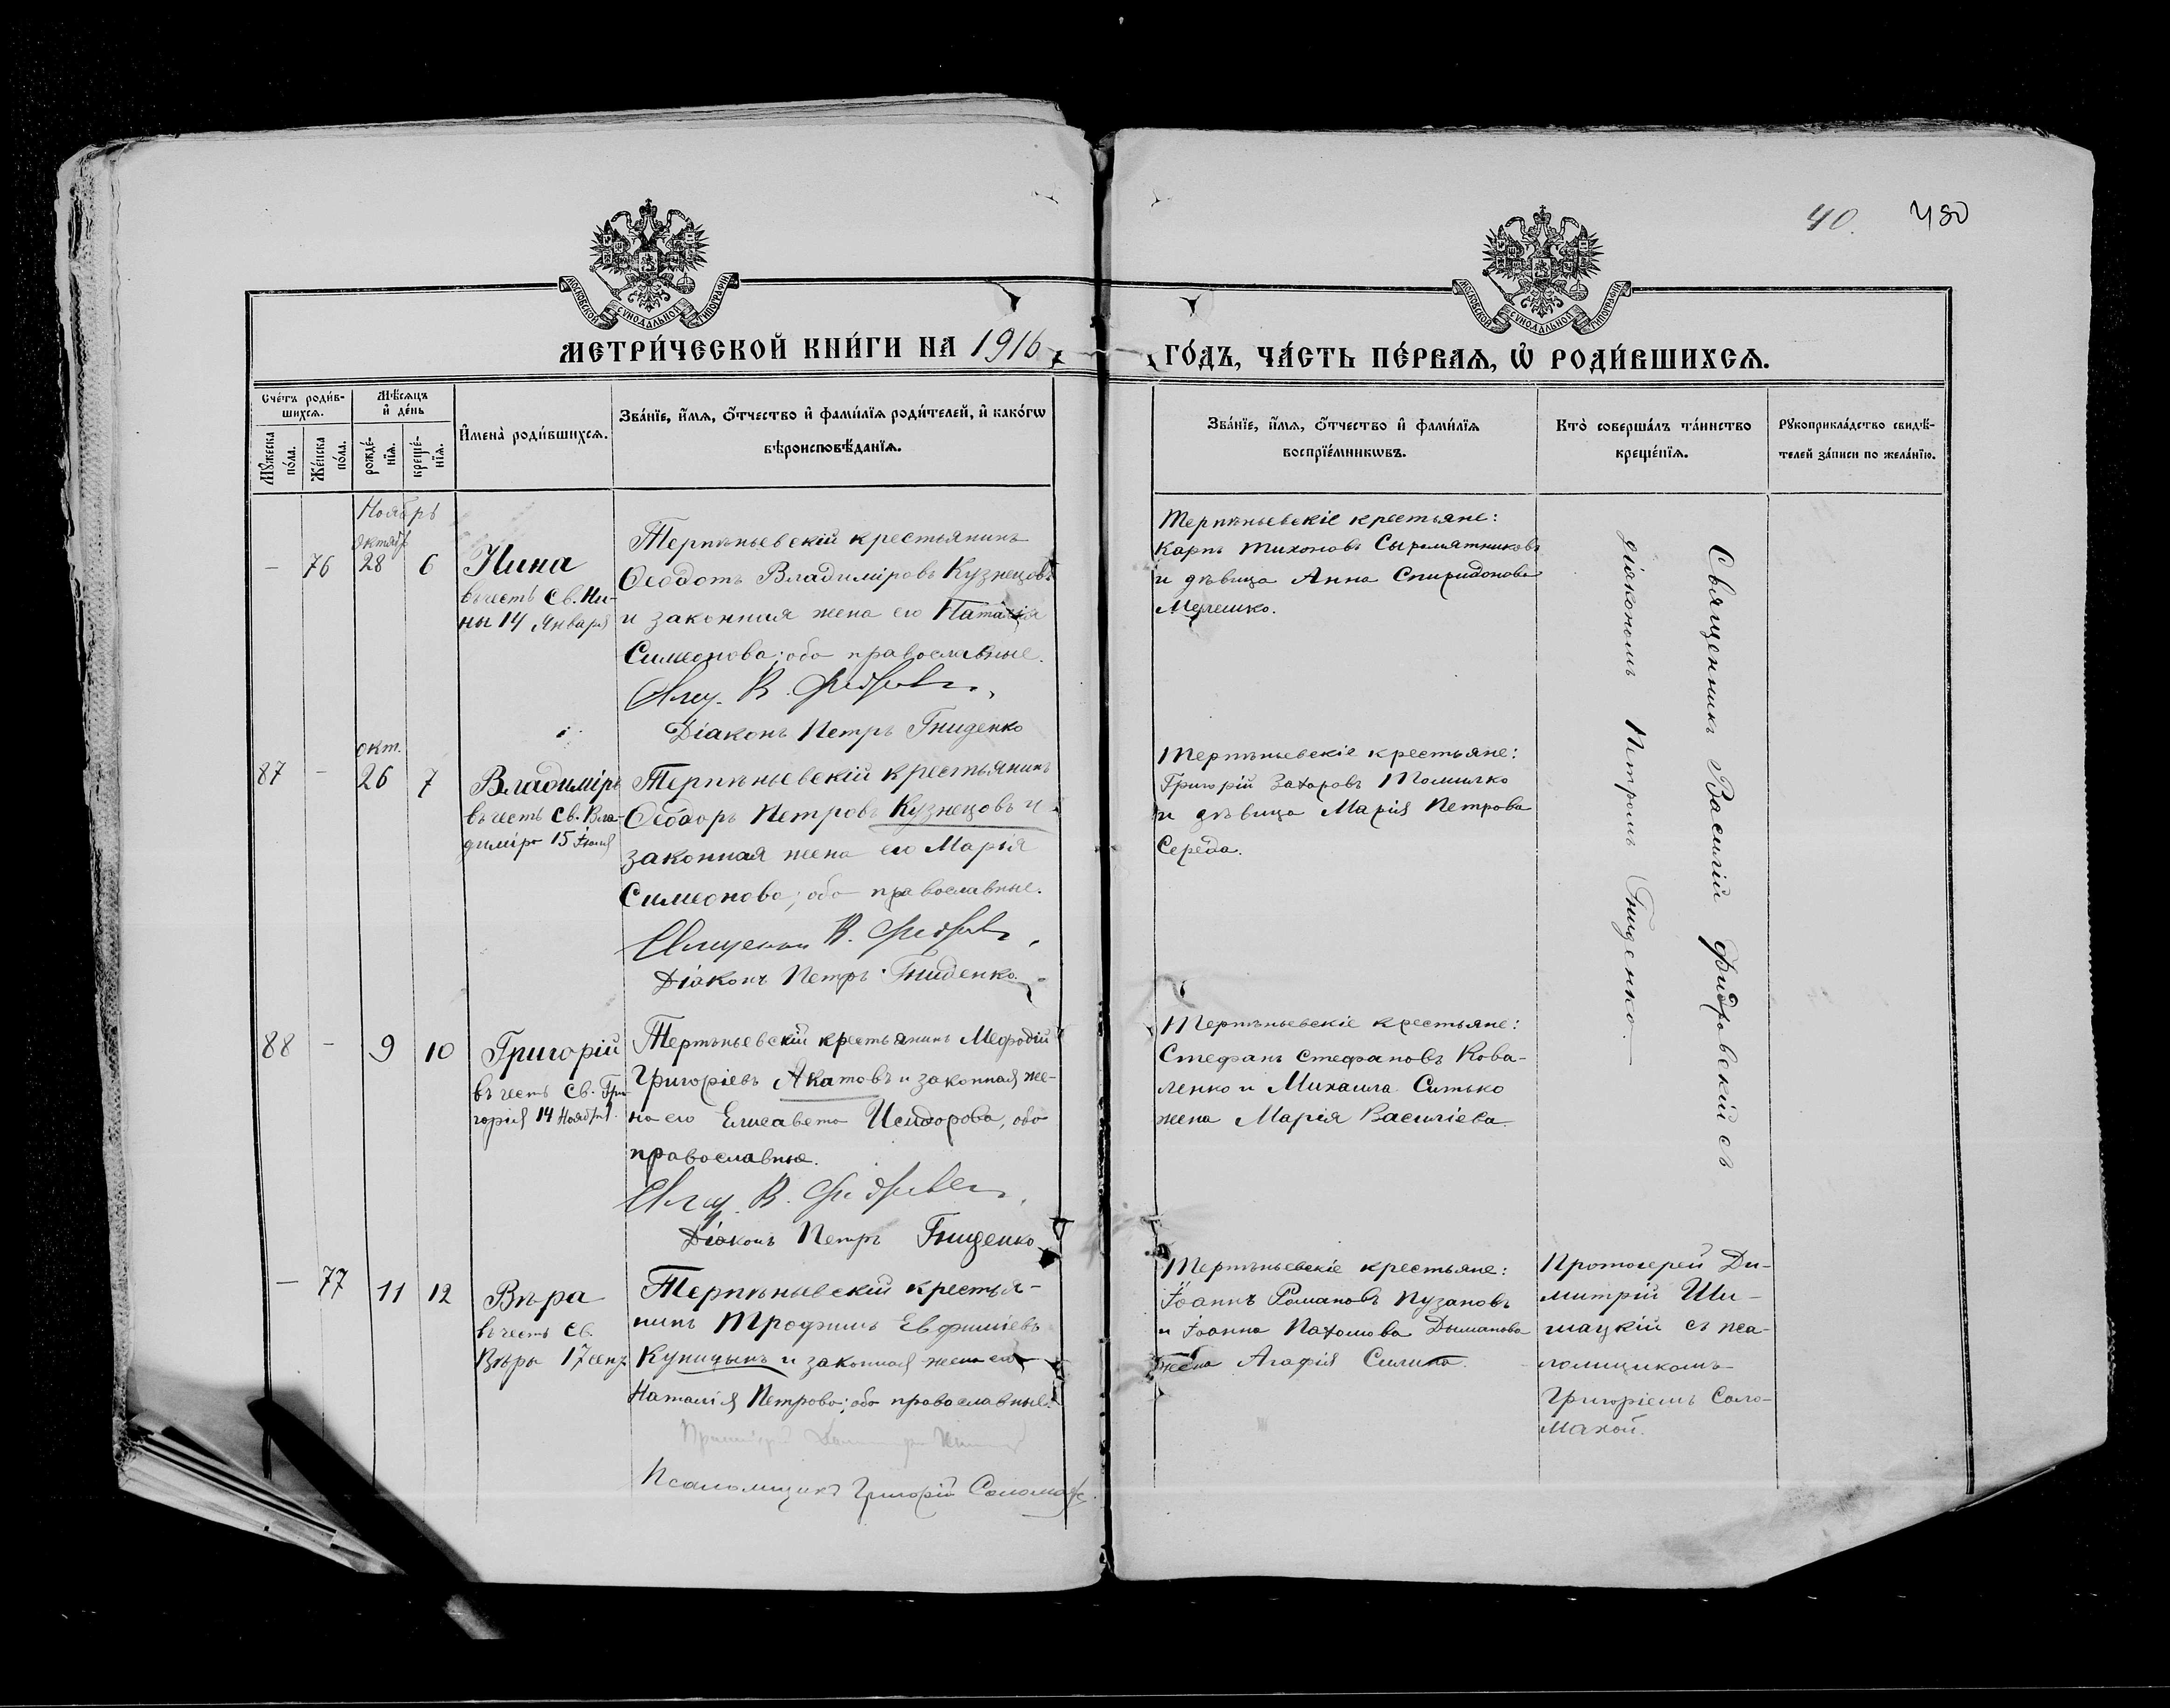 40. 480
МОСКОВСКОЙ СѴНОДАЛЬНОЙ ТИПОГРАФІИ
МОСКОВСКОЙ СѴНОДАЛЬНОЙ ТИПОГРАФІИ
МЕТРИ́ЧЕСКОЙ КНИ́ГИ НА 1916
ГО́ДЪ, ЧА́СТЬ ПЕ́РВАЯ, Ѡ҆ РОДИ́ВШИХСЯ.
Сче́тъ роди́в-
шихся.
Мѣ́сяцъ
и҆ де́нь
Мꙋ́жеска
по́ла.
Же́нска
по́ла.
рожде́-
нїя.
креще́-
нїя.
И҆мена̀ роди́вшихся.
Зва́нїе, и҆́мя, ѻ҆́тчество и҆ фами́лїя роди́телей, и҆ како́гѡ
вѣроисповѣ́данїя.
Зва́нїе, и҆́мя, ѻ҆́тчество и҆ фами́лїя
воспрїе́мникѡвъ.
Кто̀ соверша́лъ та́инство
креще́нїя.
Рꙋкоприкла́дство свидѣ́-
телей за́писи по жела́нїю.
Ноябрь
Октябр
— 76 28 6 Нина
въ честь Св. Ни-
ны 14 Января
Терпѣньевскій крестьянинъ
Ѳеодотъ Владиміровъ Кузнецовъ
и законная жена его Наталія
Симеонова; оба православные.
Свящ. В. Фидровскі
Діаконъ Петръ Гниденко
Терпѣньевскіе крестьяне:
Карпъ Тихоновъ Сыромятниковъ
и дѣвица Анна Спиридонова
Мелешко.
Священникъ Василій Фидровскій съ
діакономъ Петромъ Гниденко.
окт.
87 — 26 7 Владиміръ
въ честь Св. Вла-
диміра 15 Іюля
Терпѣньевскій крестьянинъ
Ѳеодоръ Петровъ Кузнецовъ и
законная жена его Марія
Симеонова; оба православные.
Священник В. Фидровскі
Діаконъ Петръ Гниденко.
Терпѣньевскіе крестьяне:
Григорій Захаровъ
и дѣвица Марія Петрова
Середа.
88 — 9 10 Григорій
въ честь Св. Гри-
горія 14 Ноября
Терпѣньевскій крестьянинъ Меѳодій
Григоріевъ Акатовъ и законная же-
на его Елисавета Исидорова, оба
православные.
Свящ. В. Фидровскі
Діаконъ Петръ Гниденко
Терпѣньевскіе крестьяне:
Стефанъ Стефановъ Кова-
ленко и Михаила Ситько
жена Марія Василіева
— 77 11 12 Вѣра
въ честь Св.
Вѣры 17 сент.
Терпѣньевскій крестья-
нинъ Трофимъ Евфиміевъ
Куницынъ и законная жена его
Наталія Петрова; оба православные.
Псаломщикъ Григорій Соломаха
Терпѣньевскіе крестьяне:
Іоаннъ Романовъ Пузановъ
и Іоанна Пахомова Дыманова
жена Агафія Силина.
Протоіерей Ди-
митрій Ши-
мацкій съ пса-
ломщикомъ
Григоріемъ Соло-
махой.